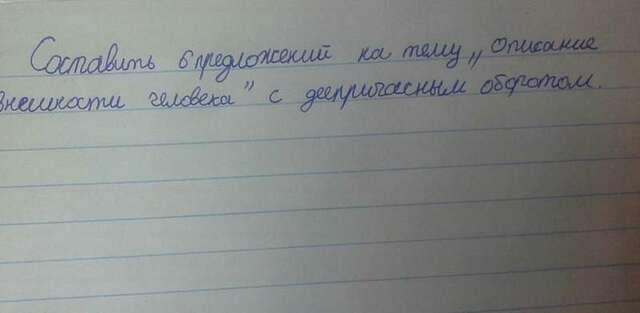 Составить 6 предложений на тему „Описание
внешности человека” с деепричасным оборотом.